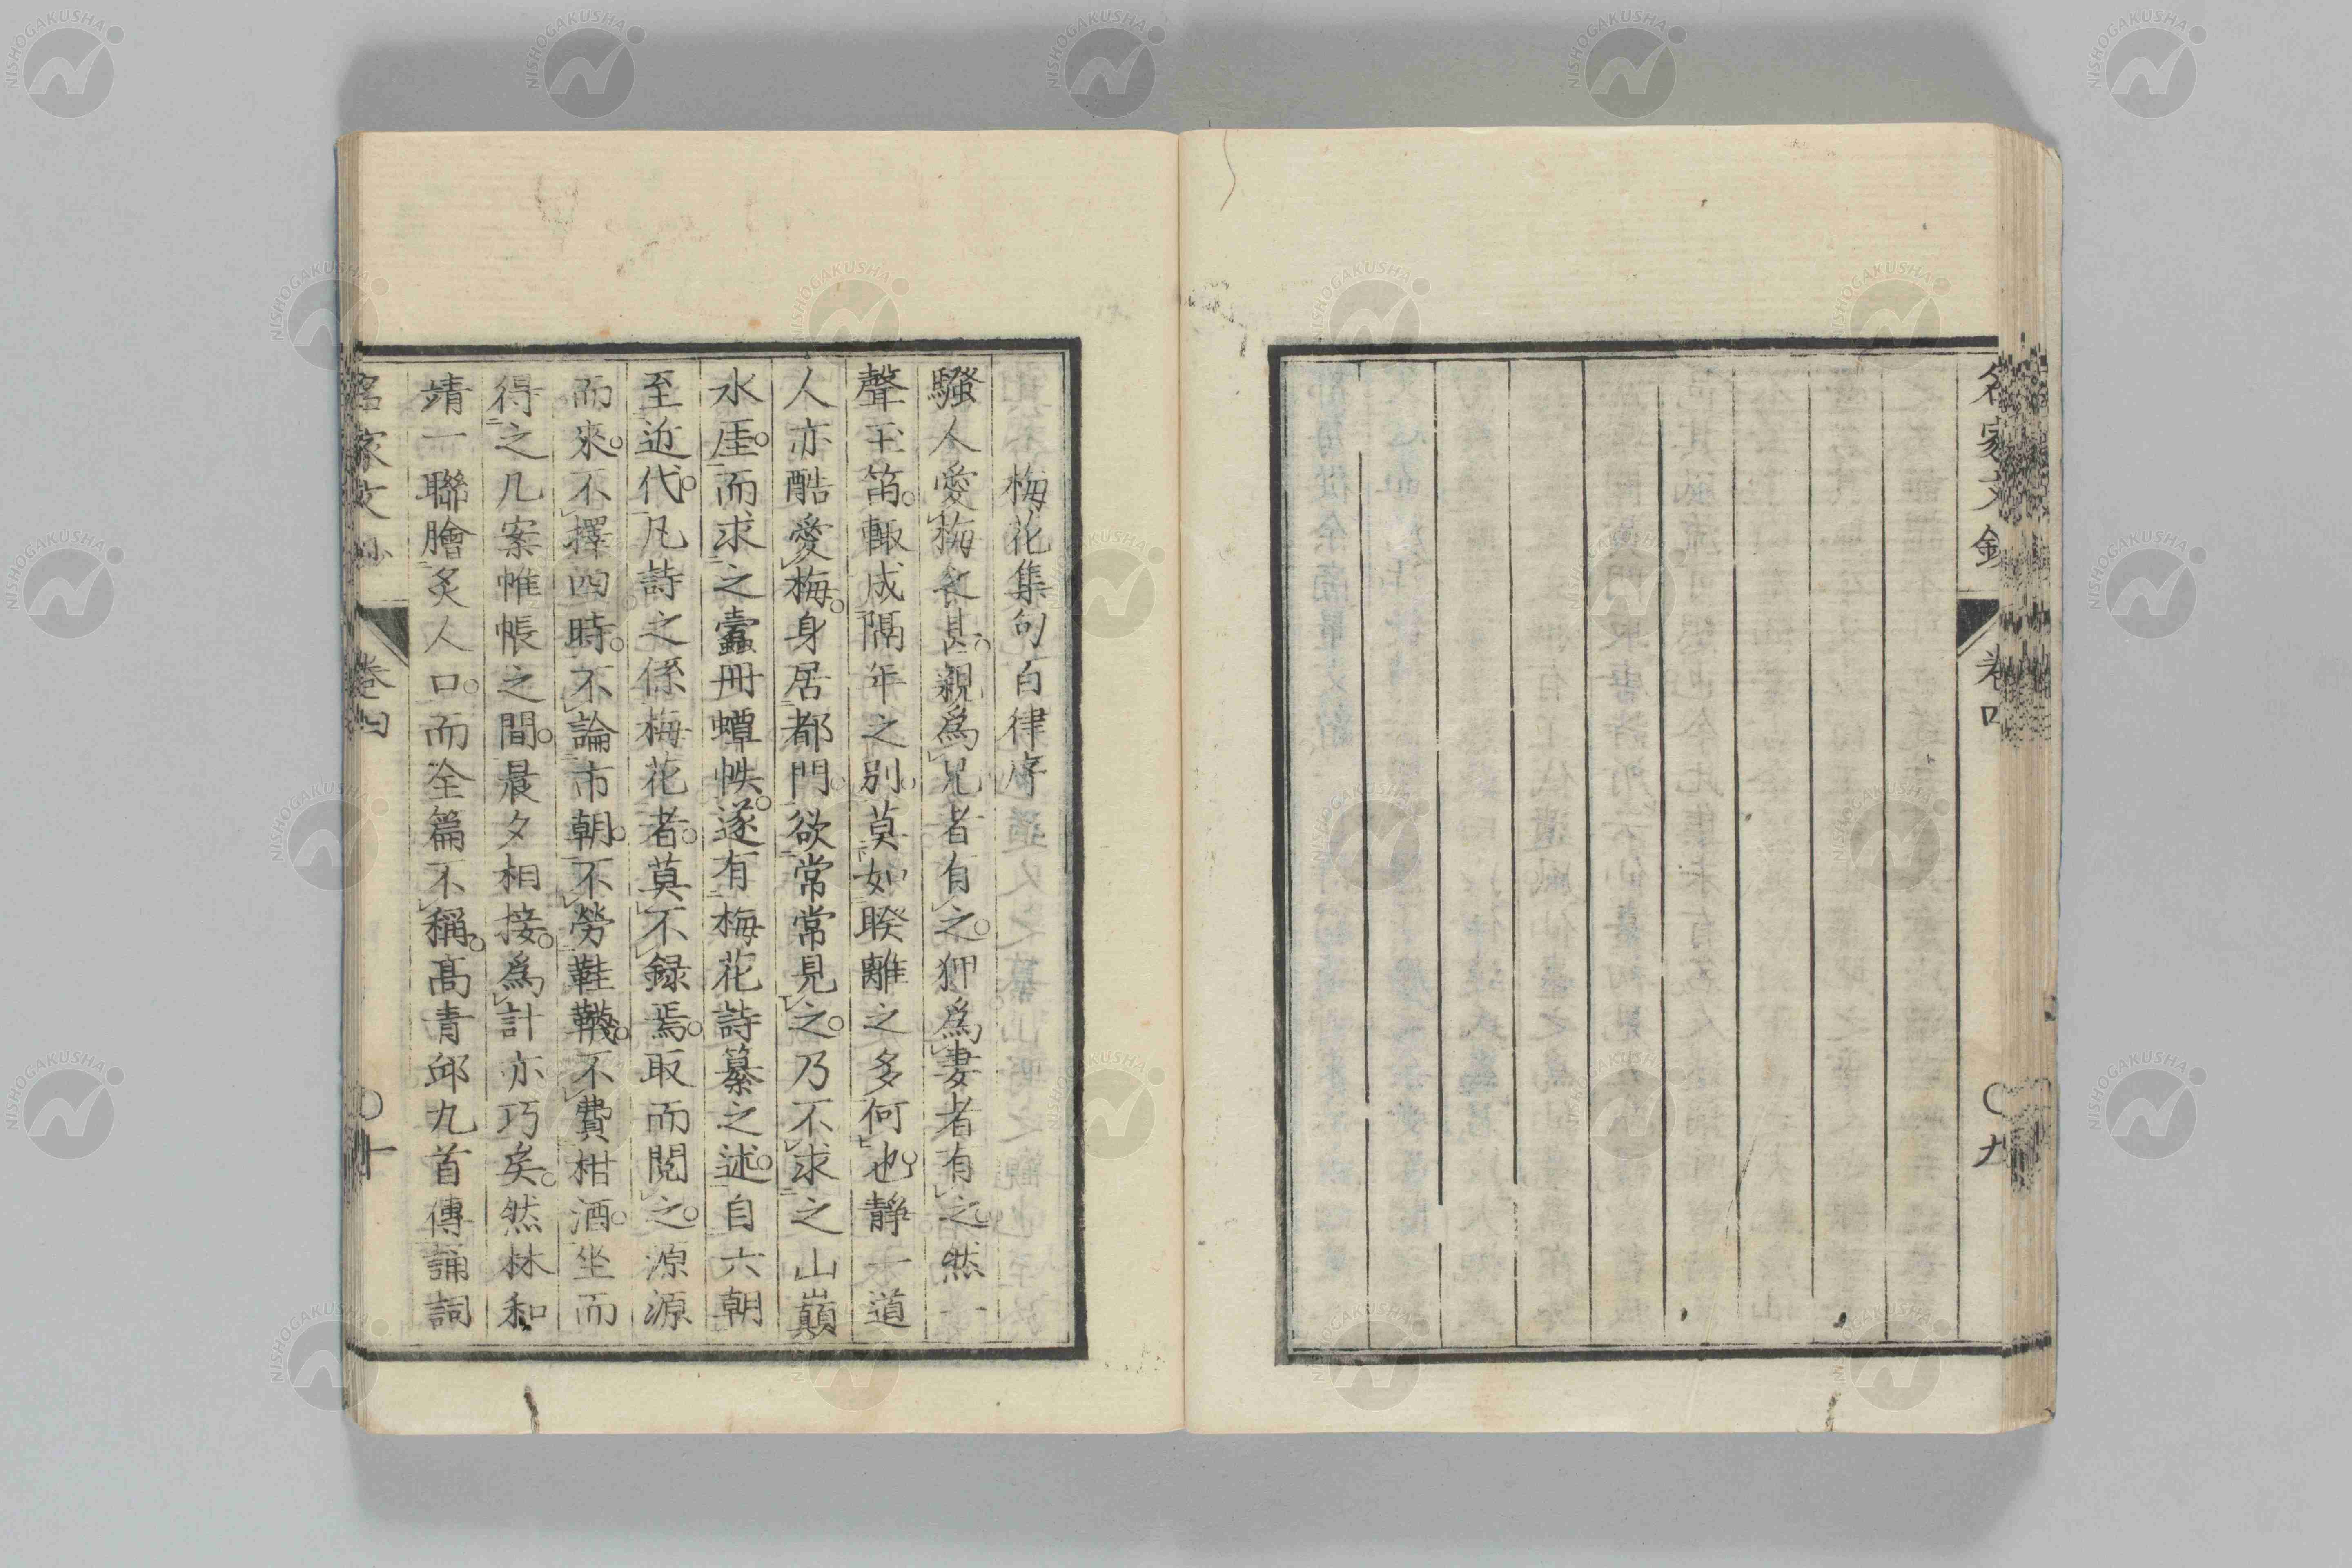 名家文鈔 卷四 〇九
梅花集句百律序
騷人愛梅之甚親爲兄者有之狎爲妻者有之然一
聲玉笛輙成隔年之別莫如睽離之多何也靜一道
人亦酷愛梅身居都門欲常常見之乃不求之山巔
水厓而求之蠹冊蟫帙遂有梅花詩纂之述自六朝
至近代凡詩之係梅花者莫不録焉取而閱之源源
而來不擇四時不論市朝不勞鞋韈不費柑酒坐而
得之几案帷帳之間晨夕相接爲計亦巧矣然林和
靖一聯膾炙人口而全篇不稱高青邱九首傳誦詞
名家文鈔 卷四 〇十
NISHOGAKUSHA